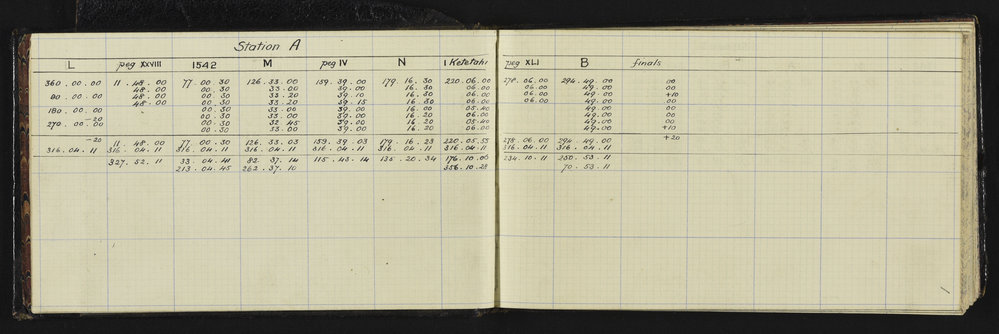 Station A
L peg XXVIII 1542 M peg IV N 1 Ketetahi peg XLI B finals
360.00.00 11.48.00 77.00.30 126.33.00 159.39.00 179.16.30 220.06.00 278.06.00 294.49.00 00
48.00 00.30 33.00 39.00 16.30 06.00 06.00 49.00 00
90.00.00 48.00 00.30 33.20 39.10 16.30 06.00 06.00 49.00 +10
48.00 00.30 33.20 39.15 16.30 06.00 06.00 49.00 00
180.00.00 00.30 33.00 39.00 16.00 05.40 49.00 00
-20 00.30 33.00 39.00 16.20 06.00 49.00 00
270.00.00 00.30 32.45 39.00 16.20 05.40 49.00 00
00.30 33.00 39.00 16.20 06.00 49.00 +10
-20 11.48.00 77.00.30 126.33.03 159.39.03 179.16.23 220.05.55 278.06.00 294.49.00 +20
316.04.11 316.04.11 316.04.11 316.04.11 316.04.11 316.04.11 316.04.11 316.04.11 316.04.11
327.52.11 33.04.41 82.37.14 115.43.14 135.20.34 176.10.06 234.10.11 250.53.11
213.04.45 262.37.10 356.10.28 70.53.11